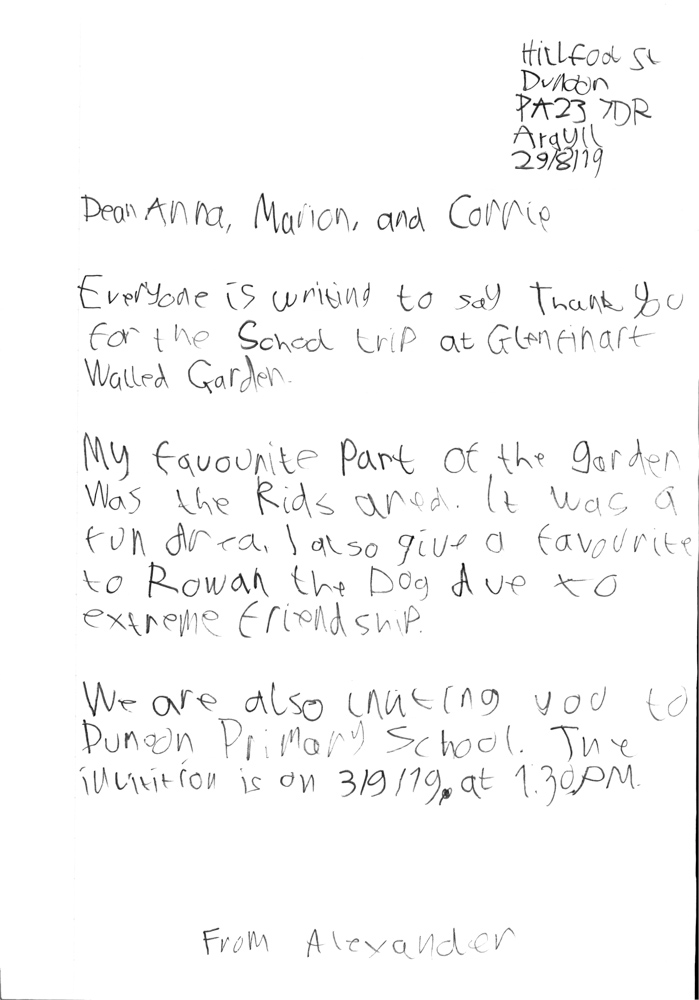 Hillfoot St
Dunoon
PA23 7DR
Argyll
29/8/19
Dear Anna, Marion, and Corrie
Everyone is writing to say Thank you
for the School trip at Glenfinart
Walled Garden.
My favourite Part of the garden
Was the Kids area. It was a
fun Area, I also give a favourite
to Rowan the Dog due to
extreme friendship.
We are also inviting you to
Dunoon Primary School. The
invitition is on 3/9/19, at 1.30PM.
From Alexander